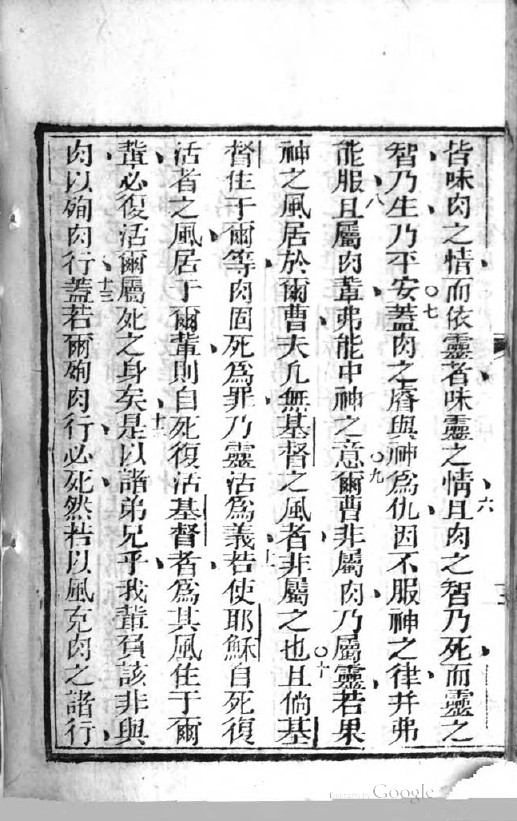 皆味肉之情而依靈者味靈之情且六肉之智乃死而靈之
智乃生乃平安○七蓋肉之睿與神為仇因不服神之律并弗
能服八且屬肉輩弗能中神之意○九爾曹非屬肉乃屬靈若果
神之風居於爾曹夫凡無基督之風者非屬之也○十且倘基
督住于爾等肉固死為罪乃靈活為義十一若使耶穌自死復
活者之風居于爾輩則自死復活基督者為其風住于爾
輩必復活爾屬死之身矣十二是以諸弟兄乎我輩負該非與
肉以殉肉行十三蓋若爾殉肉行必死然若以風克肉之諸行
Google